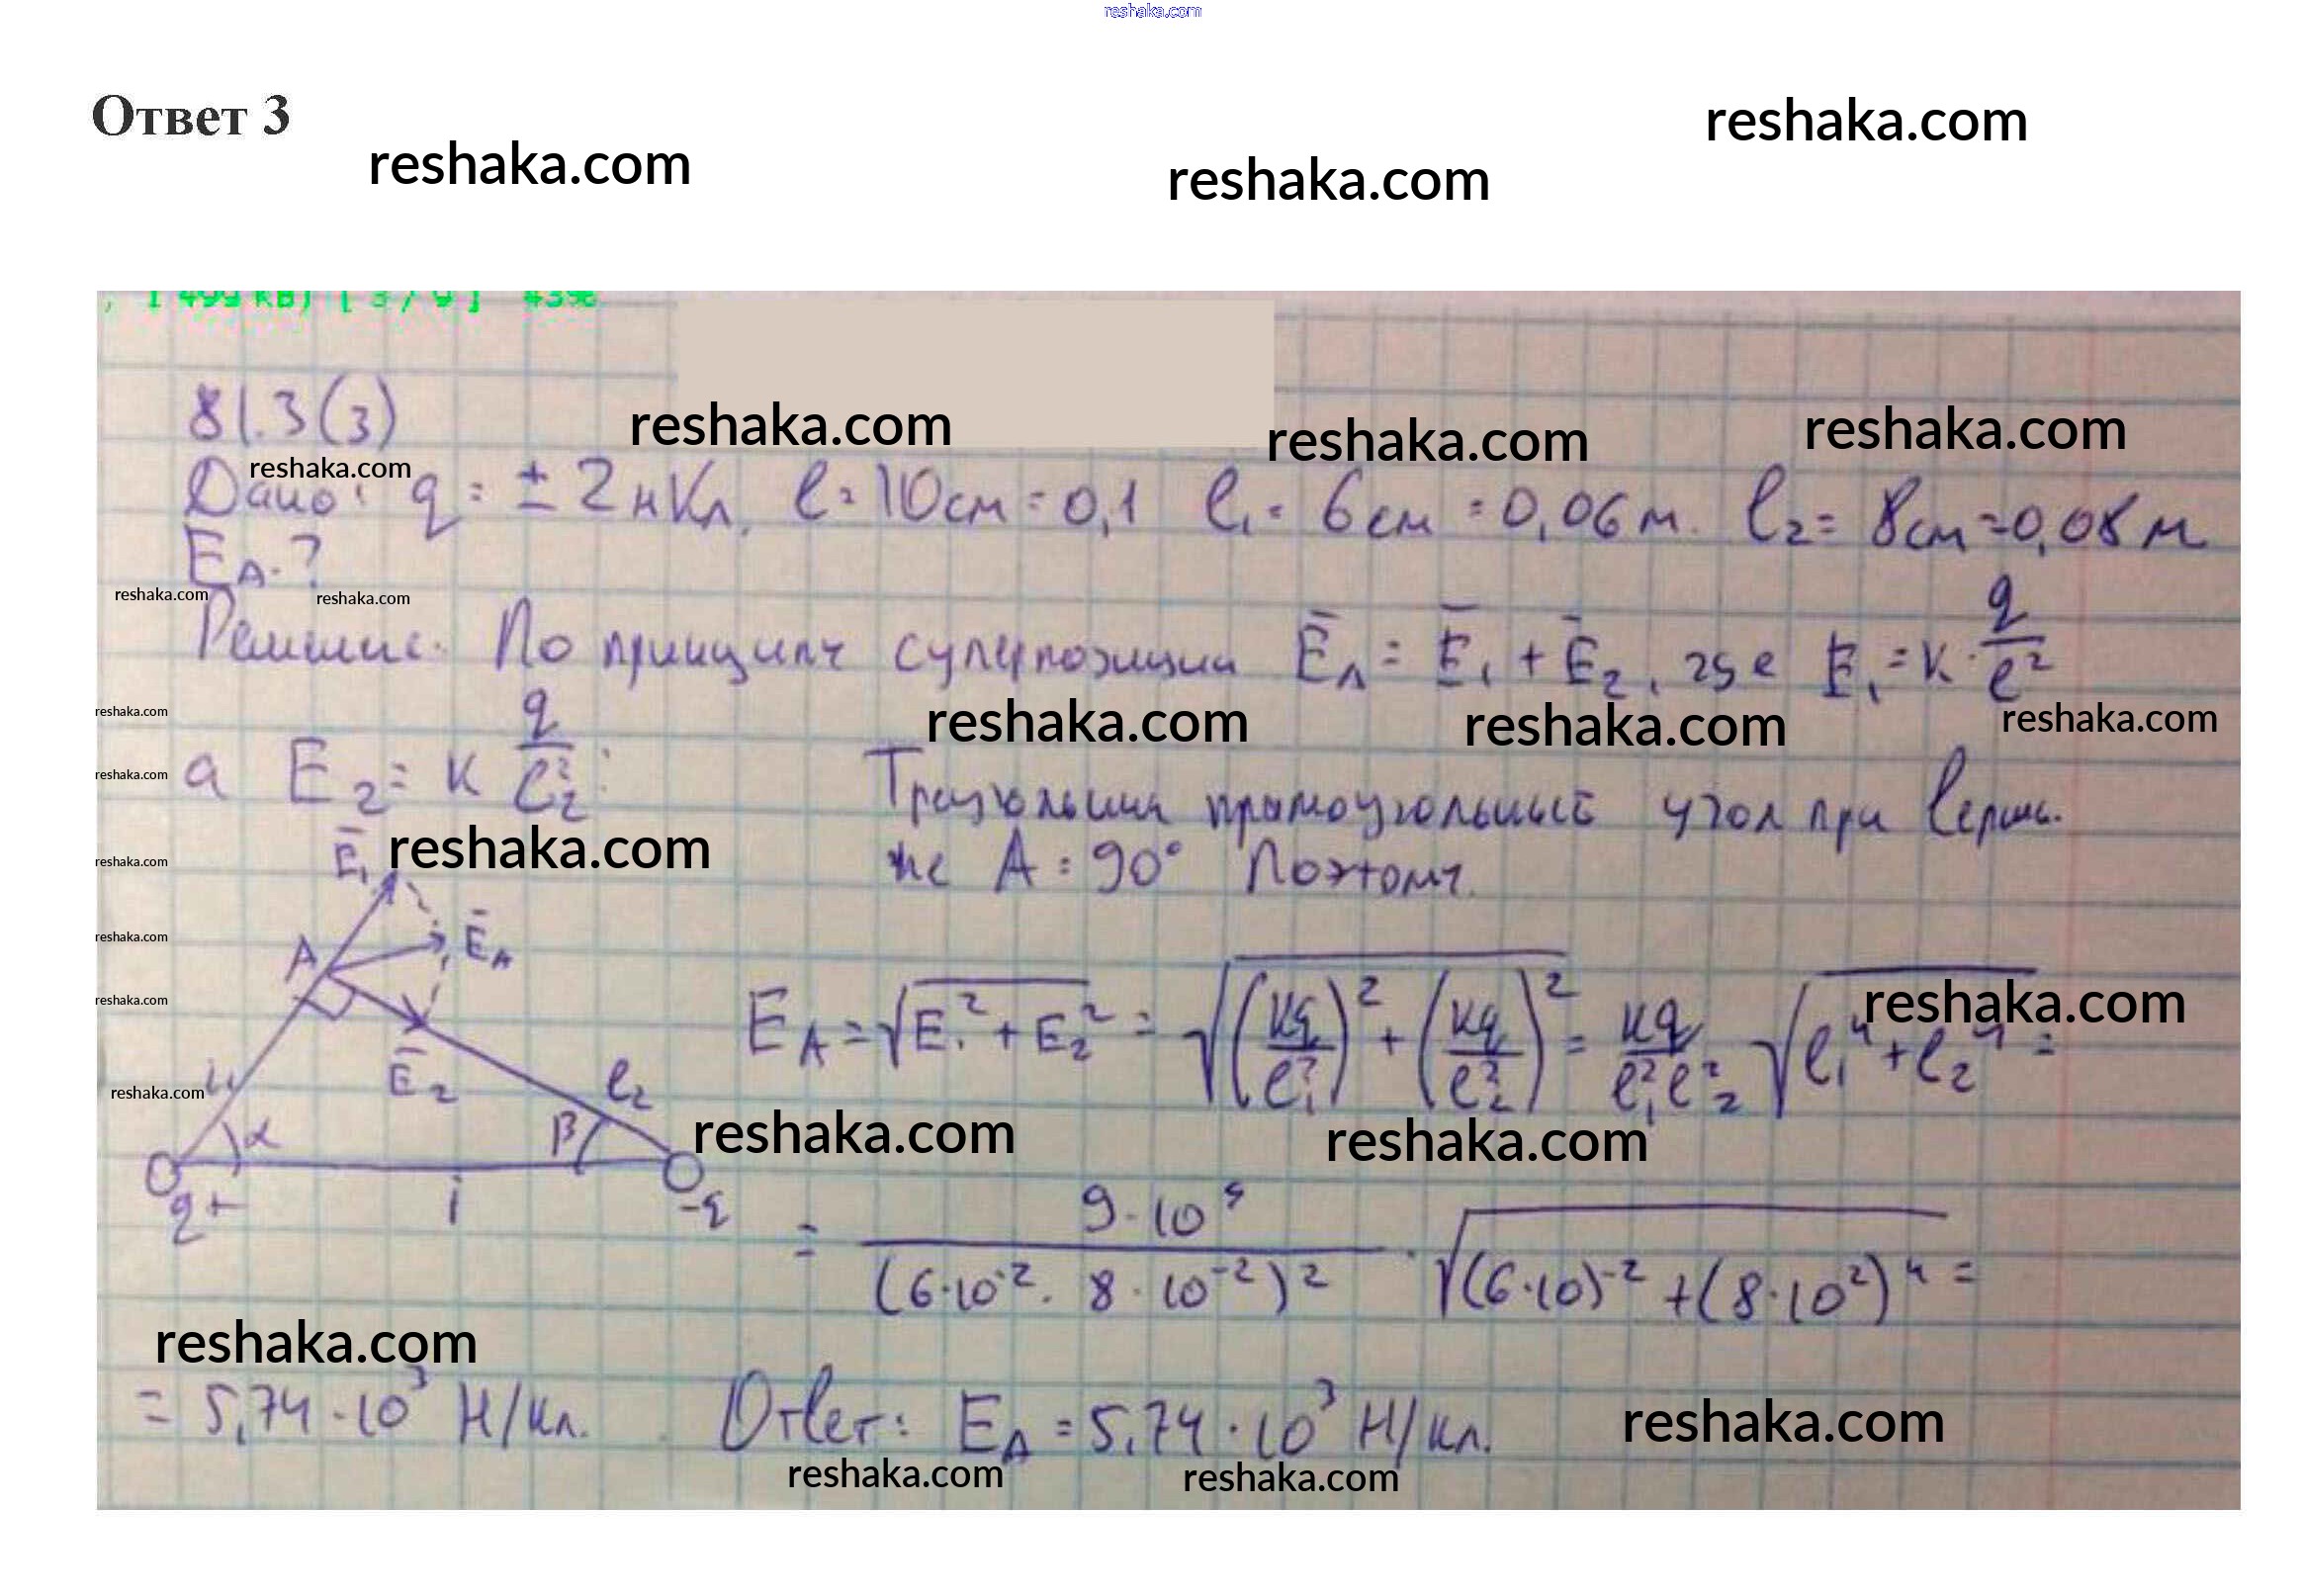 reshaka.com
Ответ 3
reshaka.com
reshaka.com
reshaka.com
81.3(3)
reshaka.com
reshaka.com
reshaka.com
reshaka.com
Дано: q = ± 2 нКл. l = 10см = 0,1 l₁ = 6см = 0,06 м. l₂ = 8см = 0,08 м
E_A - ?
reshaka.com
reshaka.com
По принципу суперпозиции E̅_A = E̅₁ + E̅₂, где E₁ = k · q/l²
reshaka.com
reshaka.com
reshaka.com
reshaka.com
а E₂ = k q/l₂²
reshaka.com
прямоугольный угол при верши-
не A = 90° Поэтому.
reshaka.com
reshaka.com
E̅₁
A
E̅_A
reshaka.com
reshaka.com
E̅₂
l₂
α
β
q+
-q
E_A = √(E₁² + E₂²) = √((kq/l₁²)² + (kq/l₂²)²) = kq/(l₁² l₂²) √(l₁⁴ + l₂⁴) =
reshaka.com
reshaka.com
reshaka.com
reshaka.com
= 9·10⁹/(6·10⁻² · 8·10⁻²)² · √((6·10)⁻² + (8·10²)⁴) =
reshaka.com
= 5,74·10³ Н/Кл. Ответ: E_A = 5,74·10³ Н/Кл.
reshaka.com
reshaka.com
reshaka.com